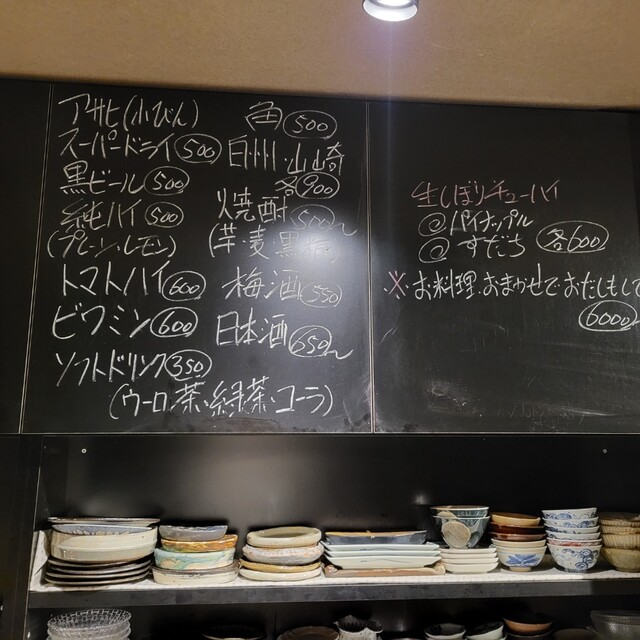 アサヒ(小びん)
スーパードライ 500
黒ビール 500
純ハイ 500
(プレーン・レモン)
トマトハイ 600
ビワミン 600
ソフトドリンク 350
(ウーロン茶・緑茶・コーラ)
角 500
白州・山崎
各900
焼酎 500〜
(芋・麦・黒糖)
梅酒 550
日本酒 650〜
生しぼりチューハイ
@パイナップル
@すだち 各600
※お料理、おまかせでおだしもして
6000〜